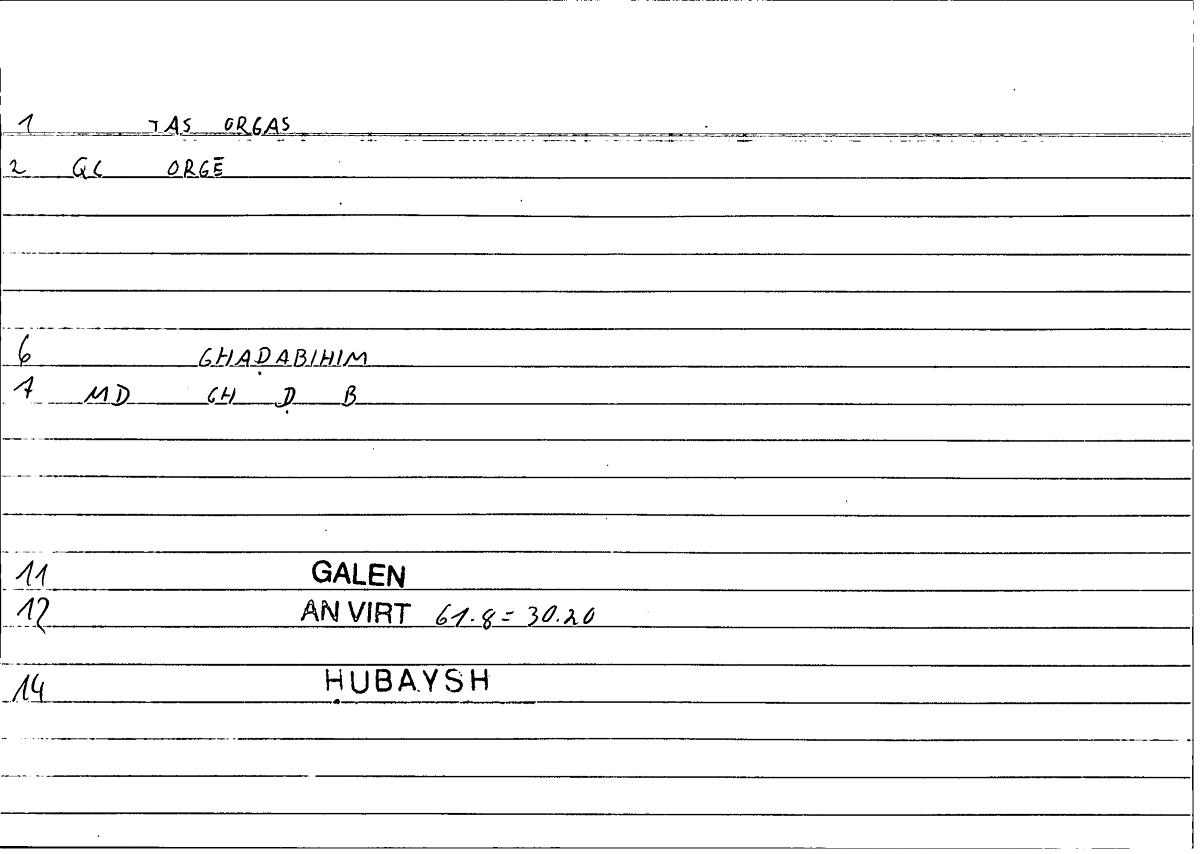 1 TAS ORGAS
2 GL ORGĒ
6 GHAḌABIHIM
7 MD GH Ḍ B
11 GALEN
12 AN VIRT 61.8=30.20
14 ḤUBAYSH